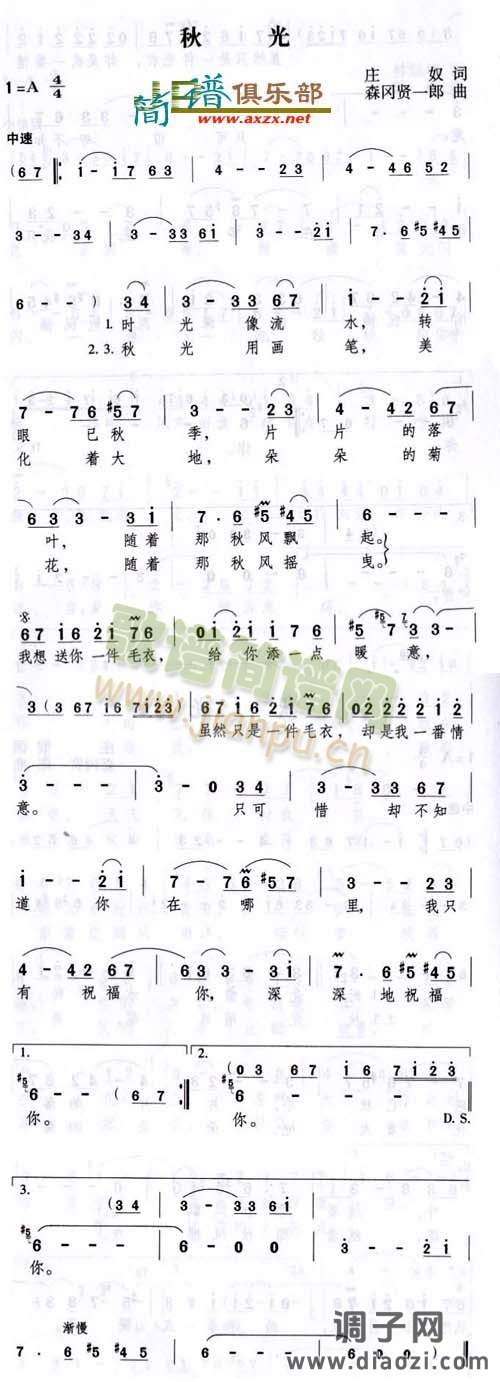 秋 光
1=A 4/4
庄 奴 词
森冈贤一郎 曲
简谱俱乐部
www.axzx.net
中速
(6 7 ‖: i - i 7 6 3 | 4 - - 2 3 | 4 - 4 6 5 2 |
3 - - 3 | 3 - 3 3 6 i | 3 - - 2 i | 7 . 6 #5 #4 5 |
6 - - ) 3 4 | 3 - 3 3 6 7 | i - - 2 i |
1.时 光 像流 水, 转
2.3.秋 光 用画 笔, 美
7 - 7 6 #5 7 | 3 - - 2 3 | 4 - 4 2 6 7 |
眼 已秋 季, 片 片 的落
化 着大 地, 朵 朵 的菊
6 3 3 - 3 i | 7 . 6 #5 #4 5 | 6 - - - |
叶, 随着 那秋风飘 起。
花, 随着 那秋风摇 曳。
6 7 i 6 2 i 7 6 | 0 i 2 i i 7 6 | #5 7 3 3 - |
我想送你一件毛衣, 给你添一点 暖意,
3 (3 6 7 i 6 7 i 2 3) | 6 7 i 6 2 i 7 6 | 0 2 2 2 2 2 i 2 |
虽然只是一件毛衣, 却是我一番情
3 - - - | 3 - 0 3 4 | 3 - 3 3 6 7 |
意。 只可 惜 却不知
i - - 2 i | 7 - 7 6 #5 7 | 3 - - 2 3 |
道 你 在 哪 里, 我只
4 - 4 2 6 7 | 6 3 3 - 3 i | 7 . 6 #5 #4 5 |
有 祝福 你, 深 深地祝福
1. 2.
(0 3 6 7 i 6 7 i 2 3)
6 - - (6 7 :‖ 6 - - - ‖
你。 你。 D.S.
3.
(3 4 | 3 - 3 3 6 i
6 - - - | 6 - 0 0 | 3 - - 2 i |
你。
渐慢
7 . 6 #5 #4 5 | 6 - - - | 6 - 0 0) ‖
歌谱简谱网
www.jianpu.cn
调子网
www.diaozi.com